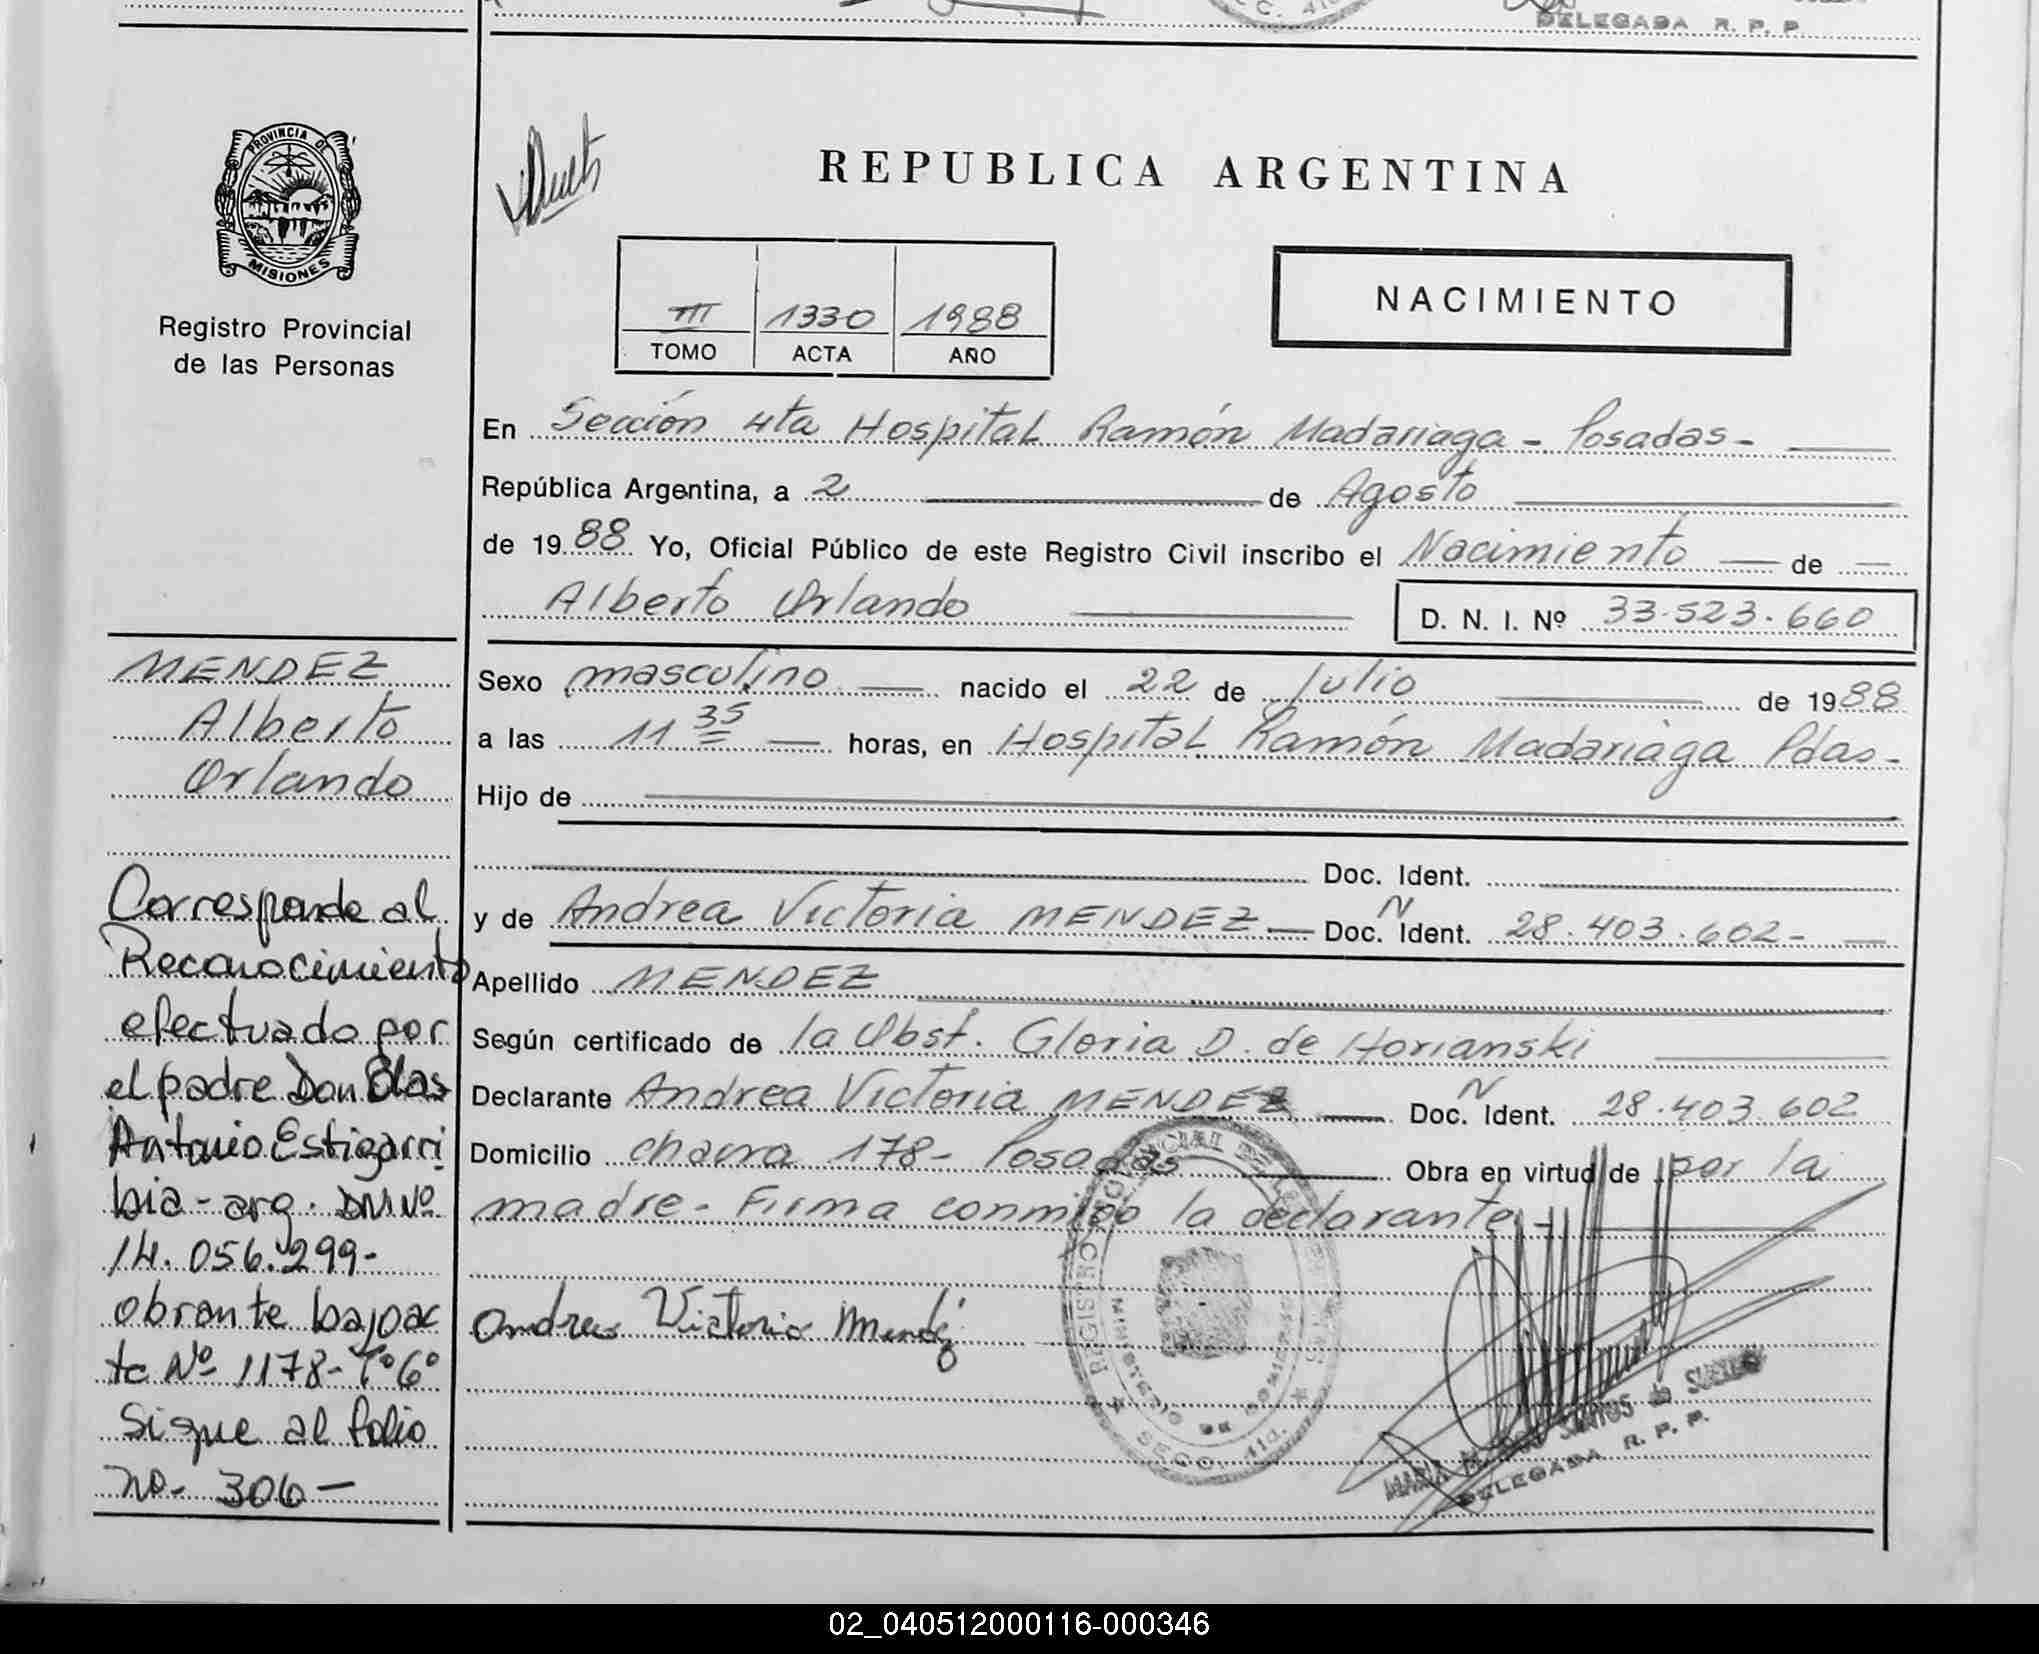 DELEGADA R. P. P.
PROVINCIA DE
MISIONES
Registro Provincial
de las Personas
REPUBLICA ARGENTINA
III 1330 1988
TOMO ACTA AÑO
NACIMIENTO
En Sección 4ta Hospital Ramón Madariaga - Posadas -
República Argentina, a 2 de Agosto
de 1988 Yo, Oficial Público de este Registro Civil inscribo el Nacimiento de
Alberto Orlando D. N. I. Nº 33.523.660
Sexo masculino nacido el 22 de Julio de 1988
a las 11 35 horas, en Hospital Ramón Madariaga Pdas -
Hijo de
Doc. Ident.
y de Andrea Victoria MENDEZ Doc. N Ident. 28.403.602-
Apellido MENDEZ
Según certificado de la Obst. Gloria D. de Horianski
Declarante Andrea Victoria MENDEZ Doc. N Ident. 28.403.602
Domicilio chacra 178- Posadas Obra en virtud de por la
madre - Firma conmigo la declarante -
Andrea Victoria Mendez
DELEGADA R. P. P.
MENDEZ
Alberto
Orlando
Corresponde al
Reconocimiento
efectuado por
el padre Don Blas
Antonio Estigarri
bia - arg. DNI Nº
14.056.299-
obrante bajo ac
ta Nº 1178- Tº 6º
Sigue al folio
no- 306-
02_040512000116-000346